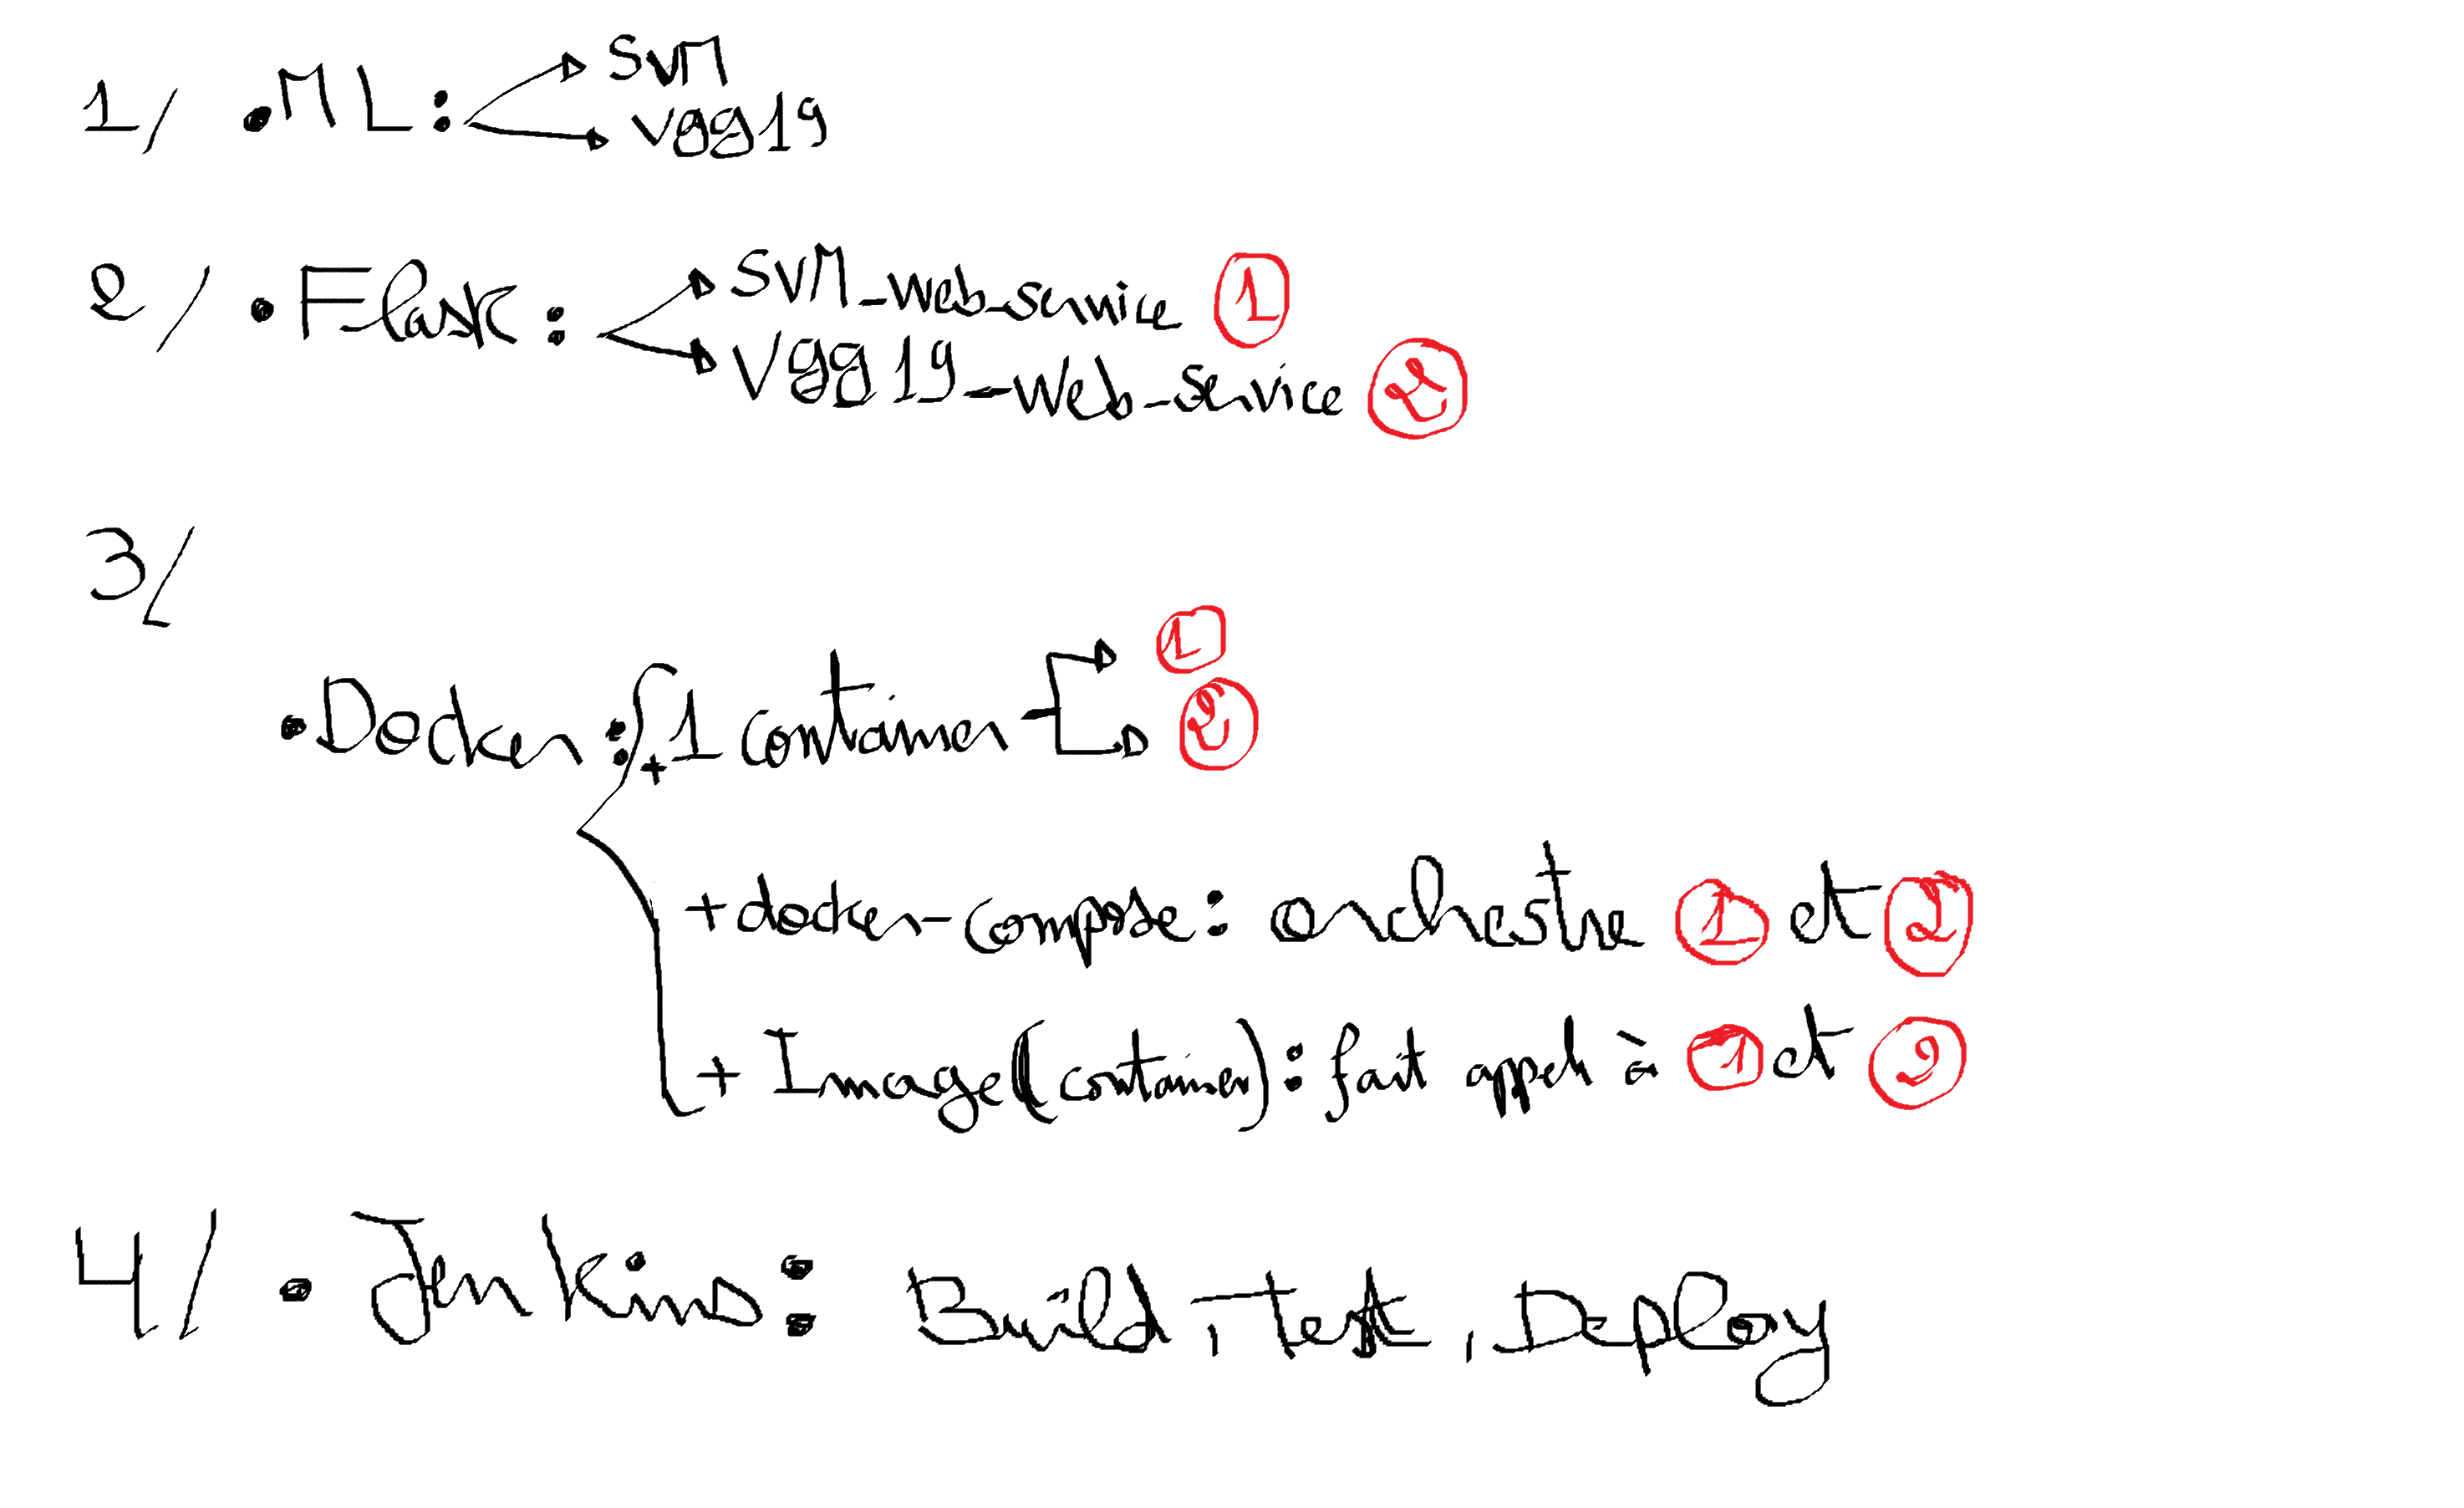 1/ •ML: SVM
Vgg19
2/ •Flask: SVM-web-service 1
Vgg19-Web-Service 2
3/
1
•Docker: +1 container 2
+docker-compose: orchestre 1 et 2
+ Image (container): fait appel à 1 et 2
4/ • Jenkins: Build, Test, Deploy